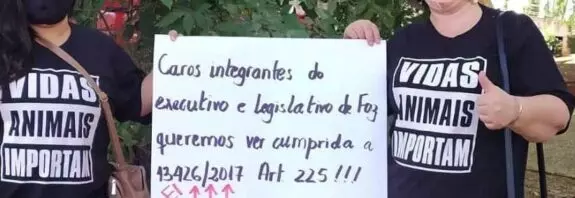 VIDAS
ANIMAIS
IMPORTAM
Caros integrantes do
executivo e legislativo de Foz
queremos ver cumprida a
13426/2017 Art 225!!!
VIDAS
ANIMAIS
IMPORTAM